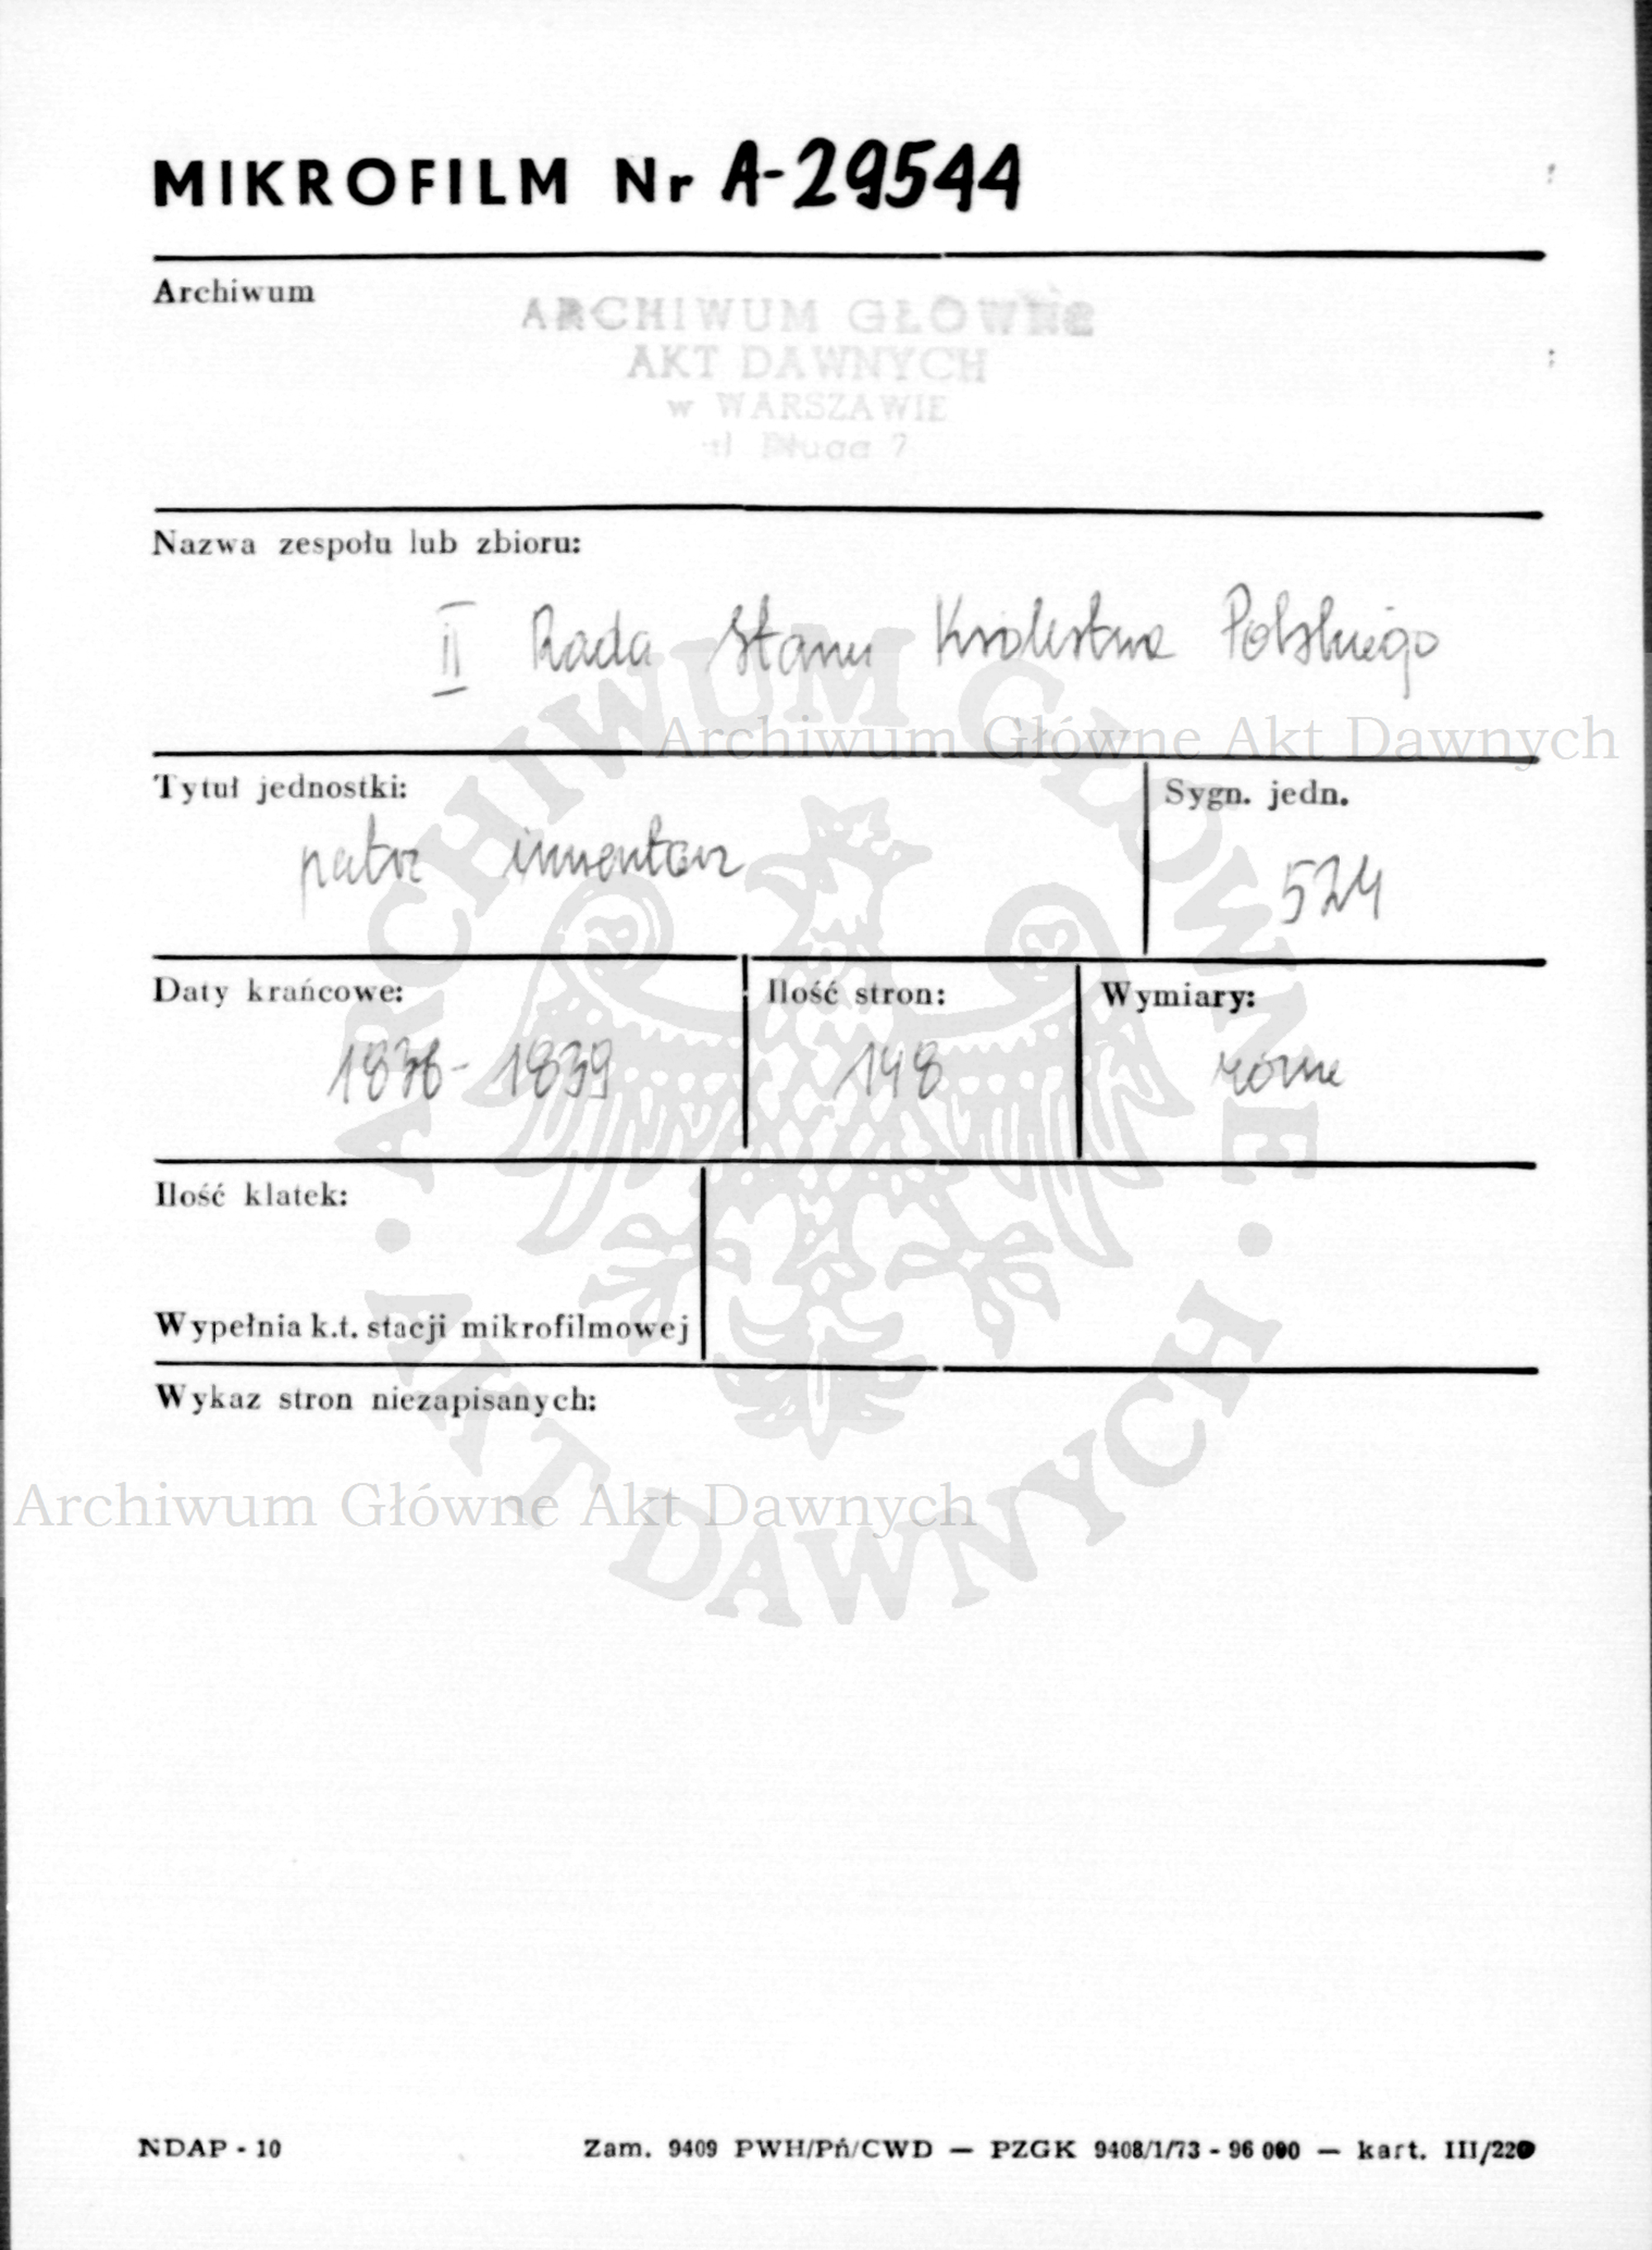 MIKROFILM Nr A-29544
Archiwum
ARCHIWUM GŁÓWNE
AKT DAWNYCH
w WARSZAWIE
ul Długa 7
Nazwa zespołu lub zbioru:
II Rada Stanu Królestwa Polskiego
Archiwum Główne Akt Dawnych
Tytuł jednostki:
Sygn. jedn.
patrz inwentarz
524
Daty krańcowe:
Ilość stron:
Wymiary:
1839
148
różne
Ilość klatek:
Wypełnia k.t. stacji mikrofilmowej
Wykaz stron niezapisanych:
Archiwum Główne Akt Dawnych
ARCHIWUM GŁÓWNE
· AKT DAWNYCH ·
NDAP - 10
Zam. 9409 PWH/Pń/CWD — PZGK 9408/1/73 - 96 000 — kart. III/220